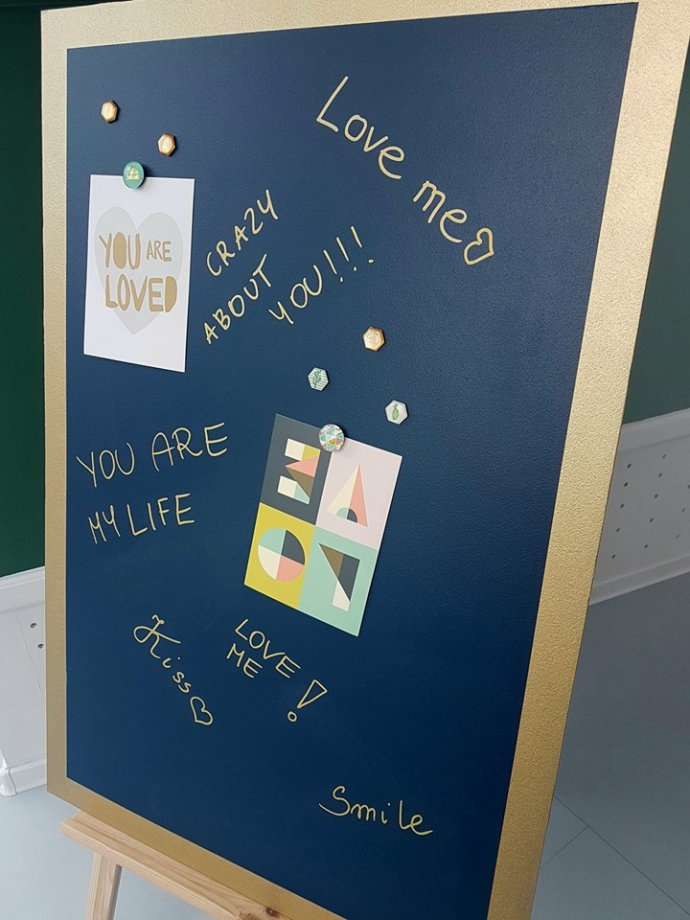 Love me
YOU ARE
LOVED
CRAZY
ABOUT
YOU!!!
YOU ARE
MY LIFE
Kiss
LOVE
ME!
Smile